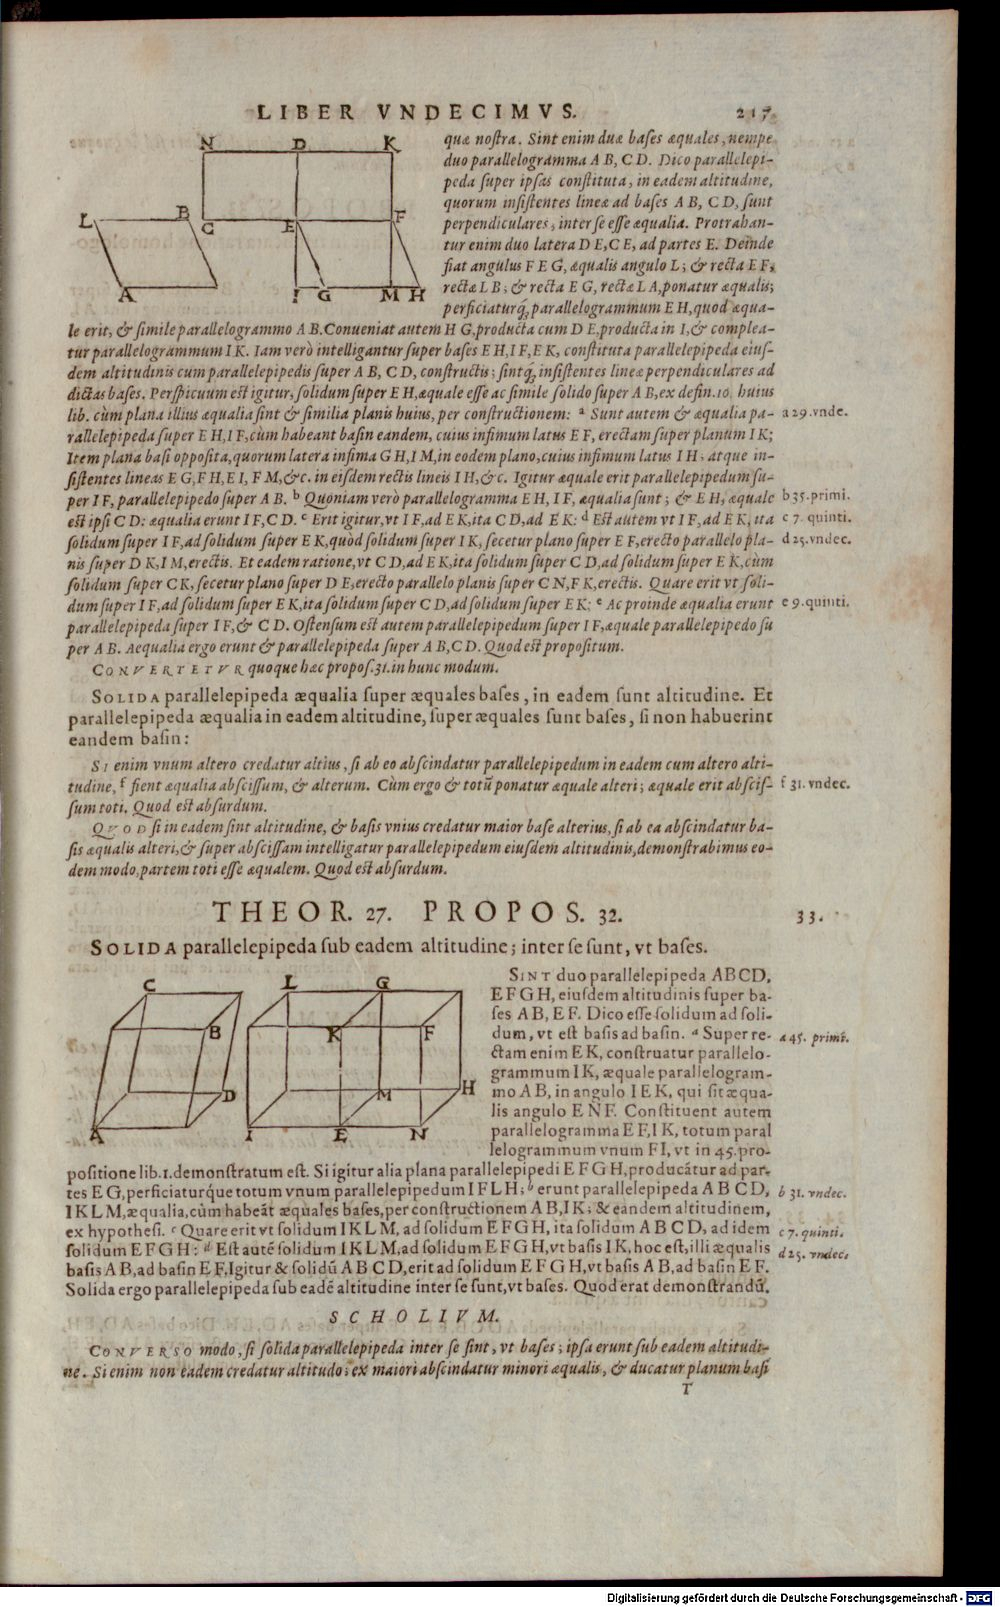 LIBER VNDECIMVS. 217
quæ nostra. Sint enim duæ bases æquales, nempe
duo parallelogramma A B, C D. Dico parallelepi-
peda super ipsas constituta, in eadem altitudine,
quorum insistentes lineæ ad bases A B, C D, sunt
perpendiculares, inter se esse æqualia. Protrahan-
tur enim duo latera D E, C E, ad partes E. Deinde
fiat angulus F E G, æqualis angulo L; & recta E F,
rectæ L B; & recta E G, rectæ L A, ponatur æqualis;
perficiaturq́, parallelogrammum E H, quod æqua-
N D K
L B C E F
A I G M H
le erit, & simile parallelogrammo A B. Conueniat autem H G, producta cum D E, producta in I, & complea-
tur parallelogrammum I K. Iam verò intelligantur super bases E H, I F, E K, constituta parallelepipeda eius-
dem altitudinis cum parallelepipedis super A B, C D, constructis; sintq́, insistentes lineæ perpendiculares ad
dictas bases. Perspicuum est igitur, solidum super E H, æquale esse ac simile solido super A B, ex defin. 10. huius
lib. cùm plana illius æqualia sint & similia planis huius, per constructionem: a Sunt autem & æqualia pa- a 29. vnde.
rallelepipeda super E H, I F, cùm habeant basin eandem, cuius infimum latus E F, erectam super planum I K;
Item plana basi opposita, quorum latera infima G H, I M, in eodem plano, cuius infimum latus I H; atque in-
sistentes lineas E G, F H, E I, F M, &c. in eisdem rectis lineis I H, &c. Igitur æquale erit parallelepipedum su-
per I F, parallelepipedo super A B. b Quoniam verò parallelogramma E H, I F, æqualia sunt; & E H, æquale b 35. primi.
est ipsi C D: æqualia erunt I F, C D. c Erit igitur, vt I F, ad E K, ita C D, ad E K: d Est autem vt I F, ad E K, ita c 7. quinti.
solidum super I F, ad solidum super E K, quòd solidum super I K, secetur plano super E F, erecto parallelo pla- d 25. vndec.
nis super D K, I M, erectis. Et eadem ratione, vt C D, ad E K, ita solidum super C D, ad solidum super E K, cùm
solidum super C K, secetur plano super D E, erecto parallelo planis super C N, F K, erectis. Quare erit vt soli-
dum super I F, ad solidum super E K, ita solidum super C D, ad solidum super E K: e Ac proinde æqualia erunt e 9. quinti.
parallelepipeda super I F, & C D. Ostensum est autem parallelepipedum super I F, æquale parallelepipedo su
per A B. Aequalia ergo erunt & parallelepipeda super A B, C D. Quod est propositum.
CONVERTETVR quoque hæc propos. 31. in hunc modum.
SOLIDA parallelepipeda æqualia super æquales bases, in eadem sunt altitudine. Et
parallelepipeda æqualia in eadem altitudine, super æquales sunt bases, si non habuerint
eandem basin:
SI enim vnum altero credatur altius, si ab eo abscindatur parallelepipedum in eadem cum altero alti-
tudine, f fient æqualia abscissum, & alterum. Cùm ergo & totũ ponatur æquale alteri; æquale erit abscis- f 31. vndec.
sum toti. Quod est absurdum.
QVOD si in eadem sint altitudine, & basis vnius credatur maior base alterius, si ab ea abscindatur ba-
sis æqualis alteri, & super abscissam intelligatur parallelepipedum eiusdem altitudinis, demonstrabimus eo-
dem modo, partem toti esse æqualem. Quod est absurdum.
THEOR. 27. PROPOS. 32. 33.
SOLIDA parallelepipeda sub eadem altitudine; inter se sunt, vt bases.
C L G
B K F
D M H
A I E N
SINT duo parallelepipeda ABCD,
EFGH, eiusdem altitudinis super ba-
ses AB, EF. Dico esse solidum ad soli-
dum, vt est basis ad basin. a Super re- a 45. primi.
ctam enim EK, construatur parallelo-
grammum IK, æquale parallelogram-
mo AB, in angulo IEK, qui sit æqua-
lis angulo ENF. Constituent autem
parallelogramma EF, IK, totum paral
lelogrammum vnum FI, vt in 45. pro-
positione lib. 1. demonstratum est. Si igitur alia plana parallelepipedi EFGH, producātur ad par-
tes EG, perficiaturq́ue totum vnum parallelepipedum IFLH; b erunt parallelepipeda ABCD, b 31. vndec.
IKLM, æqualia, cùm habeāt æquales bases, per constructionem AB, IK; & eandem altitudinem,
ex hypothesi. c Quare erit vt solidum IKLM, ad solidum EFGH, ita solidum ABCD, ad idem c 7. quinti.
solidum EFGH: d Est autē solidum IKLM, ad solidum EFGH, vt basis IK, hoc est, illi æqualis d 25. vndec.
basis AB, ad basin EF. Igitur & solidũ ABCD, erit ad solidum EFGH, vt basis AB, ad basin EF.
Solida ergo parallelepipeda sub eadē altitudine inter se sunt, vt bases. Quod erat demonstrandũ.
SCHOLIVM.
CONVERSO modo, si solida parallelepipeda inter se sint, vt bases; ipsa erunt sub eadem altitudi-
ne. Si enim non eadem credatur altitudo; ex maiori abscindatur minori æqualis, & ducatur planum basi
T
Digitalisierung gefördert durch die Deutsche Forschungsgemeinschaft - DFG